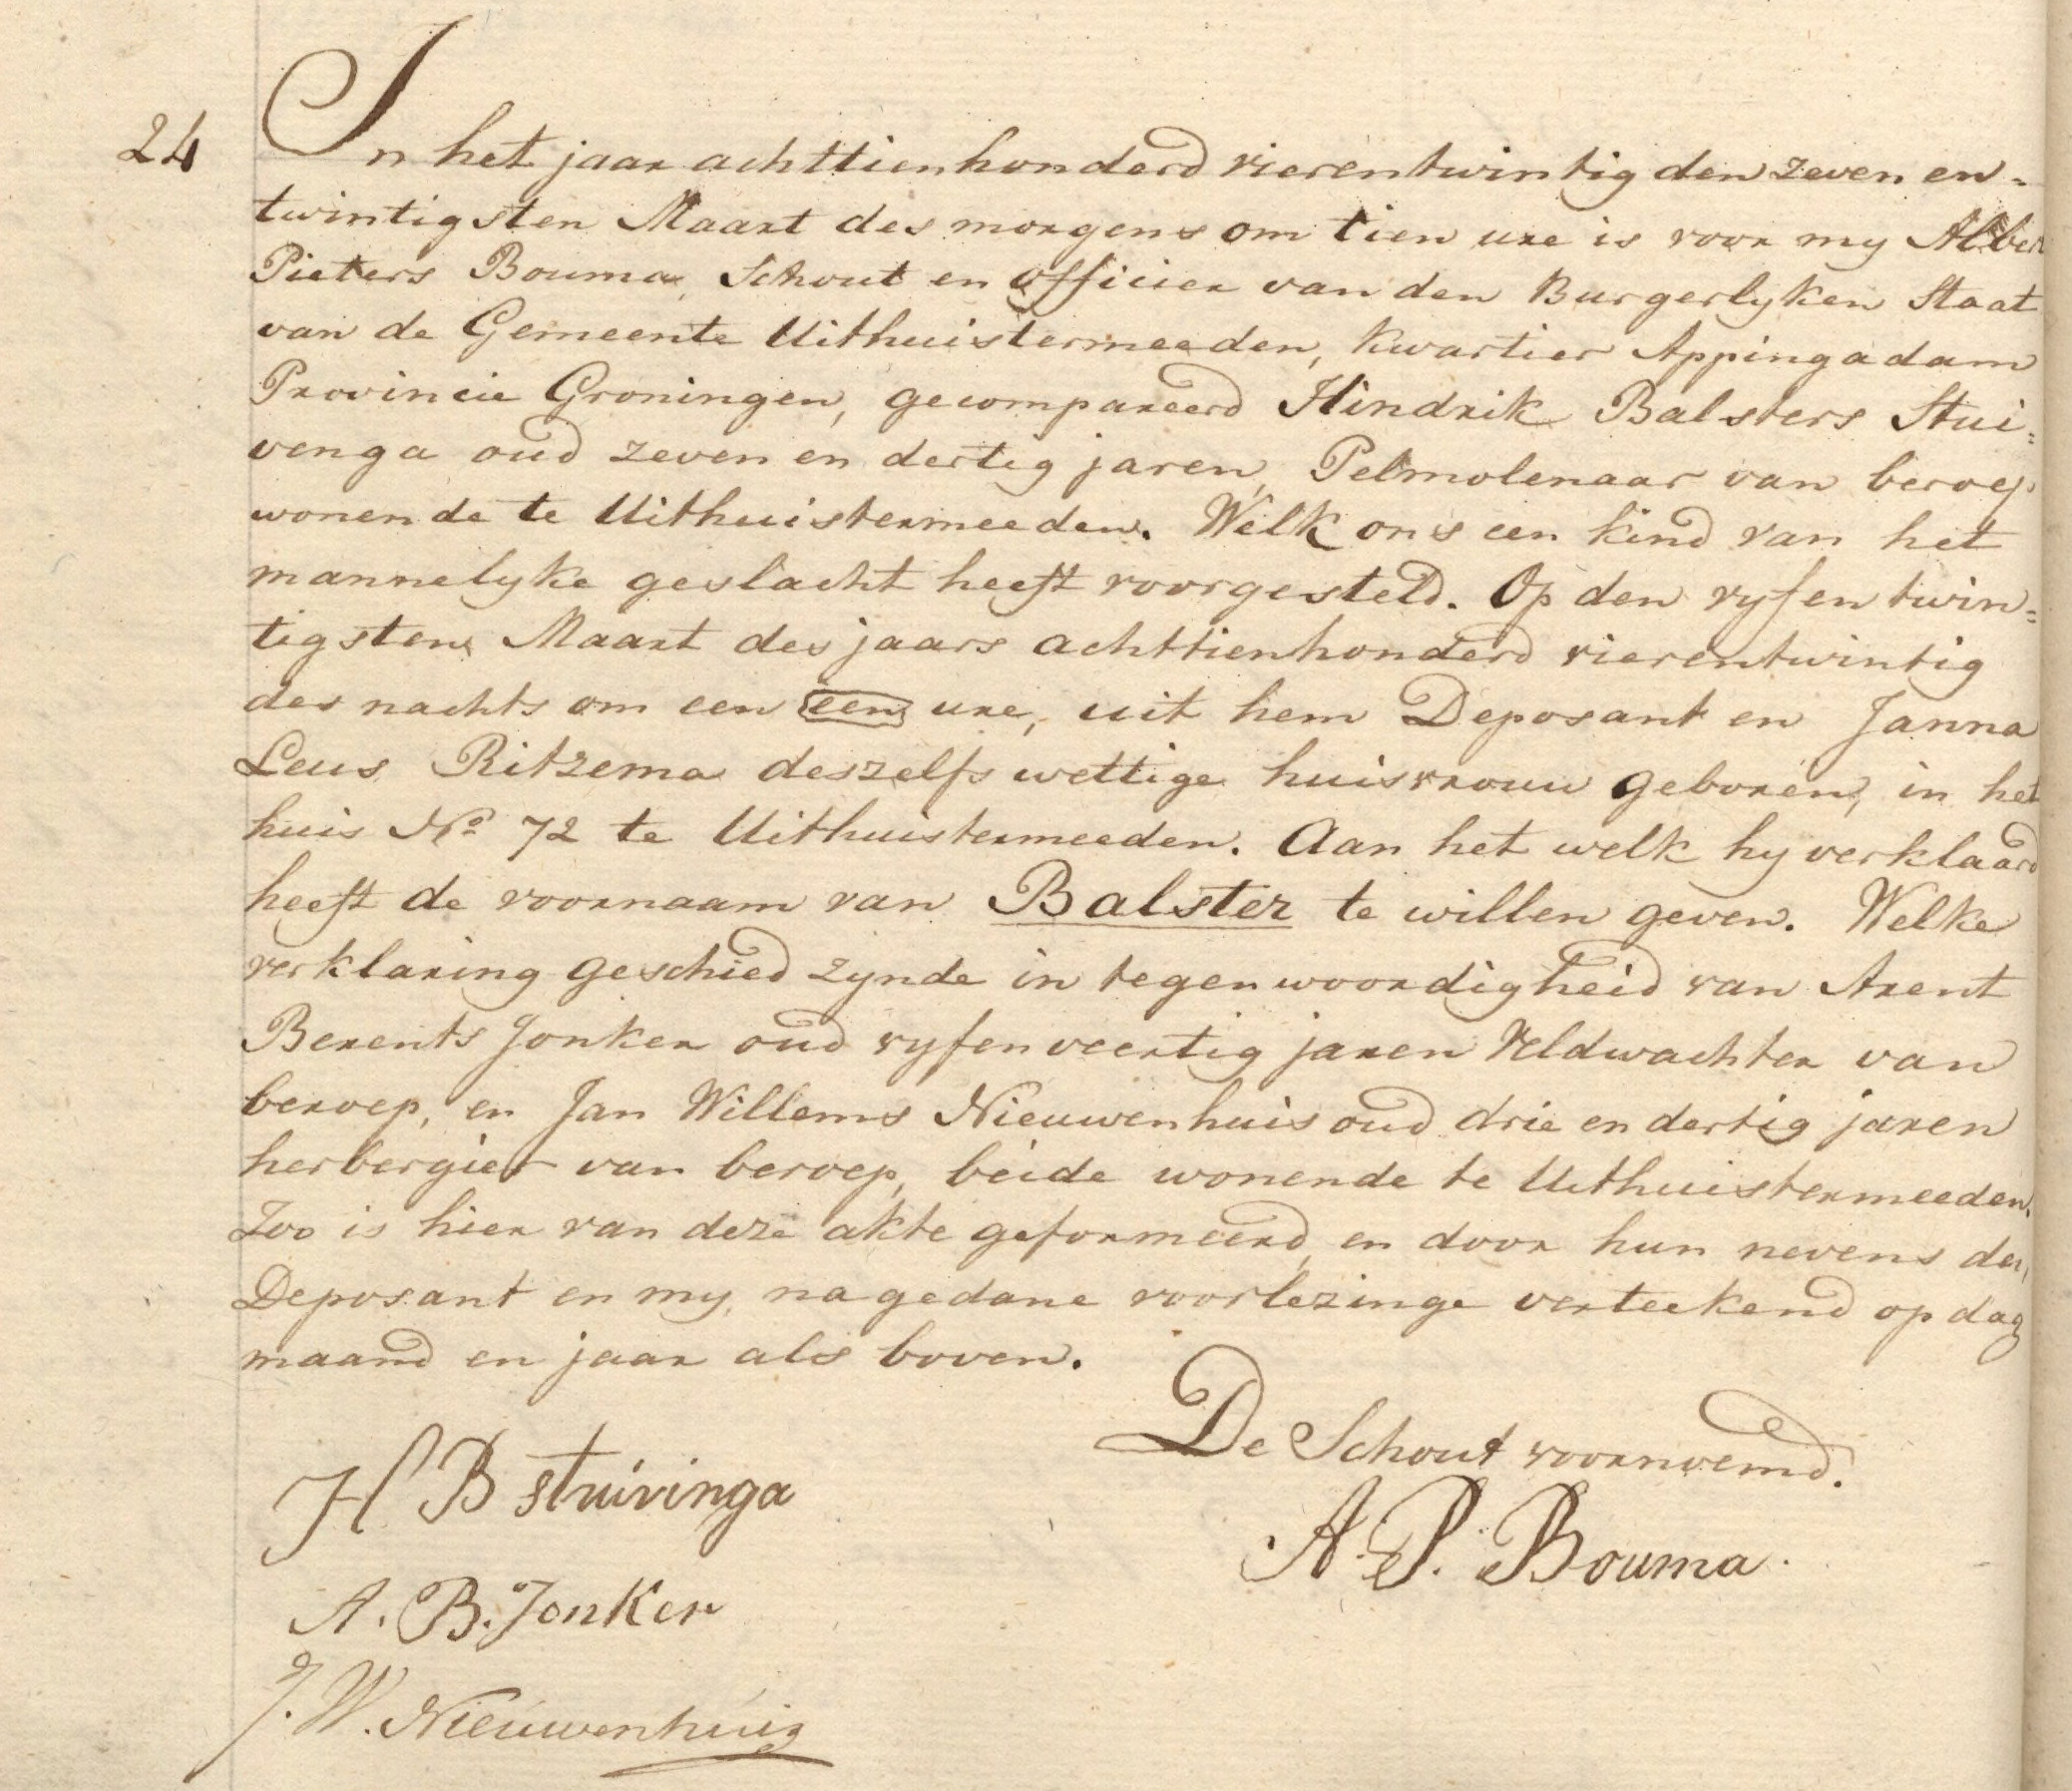 24
In het jaar achttienhonderd vierentwintig den zeven en=
twintigsten Maart des morgens om tien ure is voor my Alber
Pieters Bouma, Schout en officier van den Burgerlyken Staat
van de Gemeente Uithuistermeeden, kwartier Appingadam
Provincie Groningen, gecompareerd Hindrik Balsters Stui=
venga oud zeven en dertig jaren, Pelmolenaar van beroep
wonende te Uithuistermeeden. Welk ons een kind van het
mannelyke geslacht heeft voorgesteld. Op den vyfen twin=
tigsten Maart des jaars achttienhonderd vierentwintig
des nachts om een een ure, uit hem Deposant en Janna
Leus Ritzema deszelfs wettige huisvrouw geboren, in het
huis No 72 te Uithuistermeeden. Aan het welk hy verklaard
heeft de voornaam van Balster te willen geven. Welke
verklaring geschied zynde in tegenwoordigheid van Arent
Berents Jonker oud vyfenveertig jaren Veldwachter van
beroep, en Jan Willems Nieuwenhuis oud drie en dertig jaren
herbergier van beroep, beide wonende te Uithuistermeeden.
Zoo is hier van deze akte geformeerd, en door hun nevens den
Deposant en my, na gedane voorlezinge verteekend op dag
maand en jaar als boven.
De Schout voornoemd.
H B stuivinga
A. P. Bouma.
A. B. Jonker
J. W. Nieuwenhuis